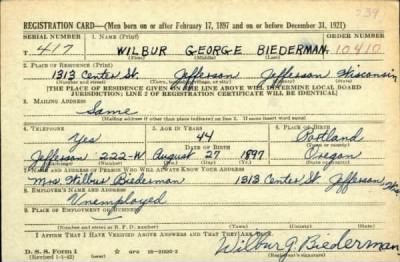 239
REGISTRATION CARD—(Men born on or after February 17, 1897 and on or before December 31, 1921)
SERIAL NUMBER 1. NAME (Print) ORDER NUMBER
T 417 WILBUR GEORGE BIEDERMAN 10410
(First) (Middle) (Last)
2. PLACE OF RESIDENCE (Print)
1313 Center St. Jefferson Jefferson Wisconsin
(Number and street) (Town, township, village, or city) (County) (State)
[THE PLACE OF RESIDENCE GIVEN ON THE LINE ABOVE WILL DETERMINE LOCAL BOARD
JURISDICTION; LINE 2 OF REGISTRATION CERTIFICATE WILL BE IDENTICAL]
3. MAILING ADDRESS
Same
(Mailing address if other than place indicated on line 2. If same insert word same)
4. TELEPHONE 5. AGE IN YEARS 6. PLACE OF BIRTH
Yes 44 Portland
DATE OF BIRTH (Town or county)
Jefferson 222-W August 27 1897 Oregon
(Exchange) (Number) (Mo.) (Day) (Yr.) (State or country)
7. NAME AND ADDRESS OF PERSON WHO WILL ALWAYS KNOW YOUR ADDRESS
Mrs. Wilbur Biederman 1313 Center St. Jefferson, Wis
8. EMPLOYER'S NAME AND ADDRESS
Unemployed
9. PLACE OF EMPLOYMENT OR BUSINESS
(Number and street or R. F. D. number) (Town) (County) (State)
I AFFIRM THAT I HAVE VERIFIED ABOVE ANSWERS AND THAT THEY ARE TRUE.
D. S. S. Form 1
(Revised 1-1-42) (over)
Wilbur G. Biederman
(Registrant's signature)